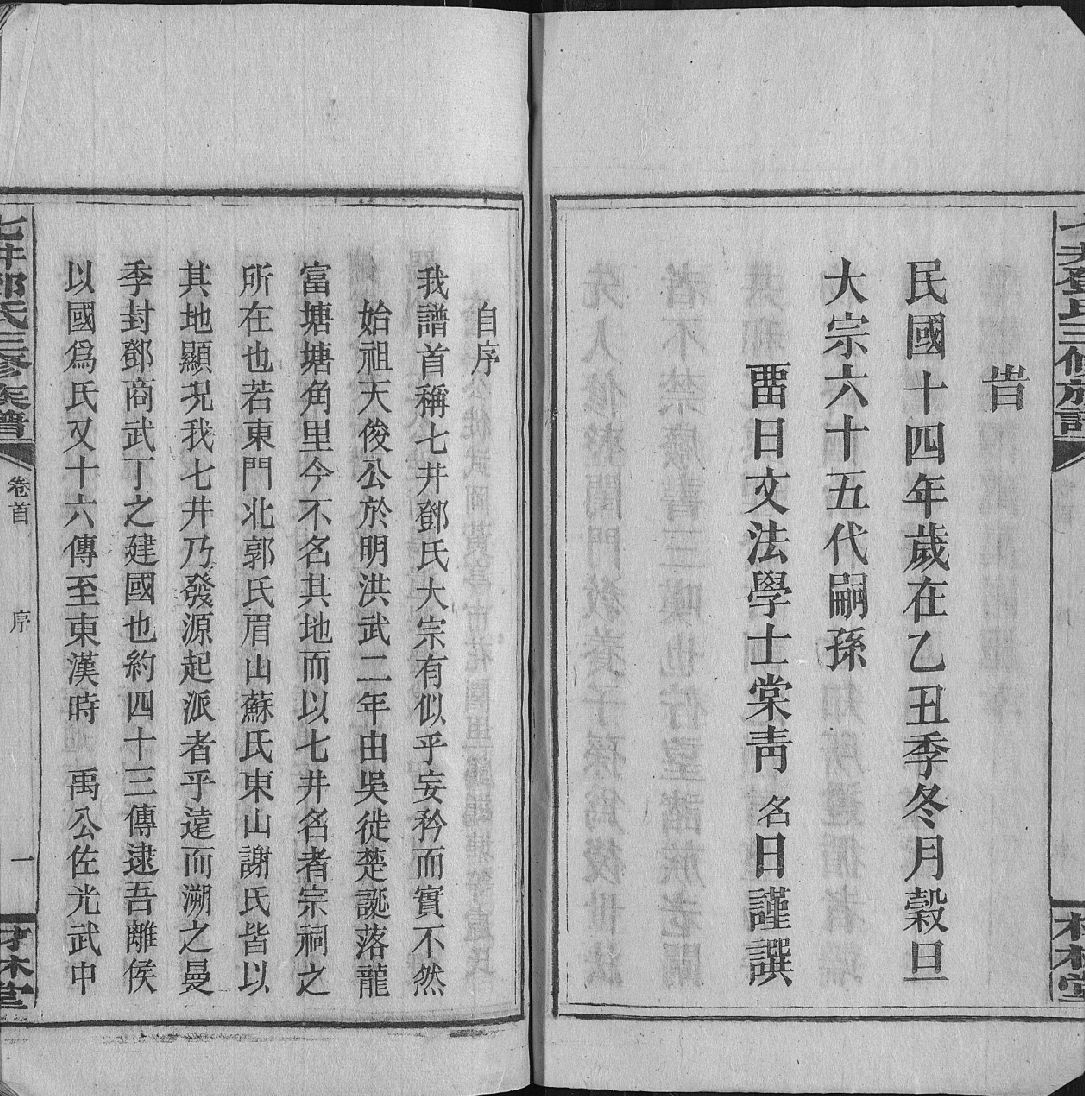 七井鄧氏三修族譜
旹
民國十四年歲在乙丑季冬月穀旦
大宗六十五代嗣孫
畱日文法學士棠青 名日謹譔
自序
我譜首稱七井鄧氏大宗有似乎妄矜而實不然
始祖天俊公於明洪武二年由吳徙楚誕落龍
富塘塘角里今不名其地而以七井名者宗祠之
所在也若東門北郭氏眉山蘇氏東山謝氏皆以
其地顯況我七井乃發源起派者乎遠而溯之曼
季封鄧商武丁之建國也約四十三傳逮吾離侯
以國爲氏又十六傳至東漢時 禹公佐光武中
七井鄧氏三修族譜 卷首 序 一